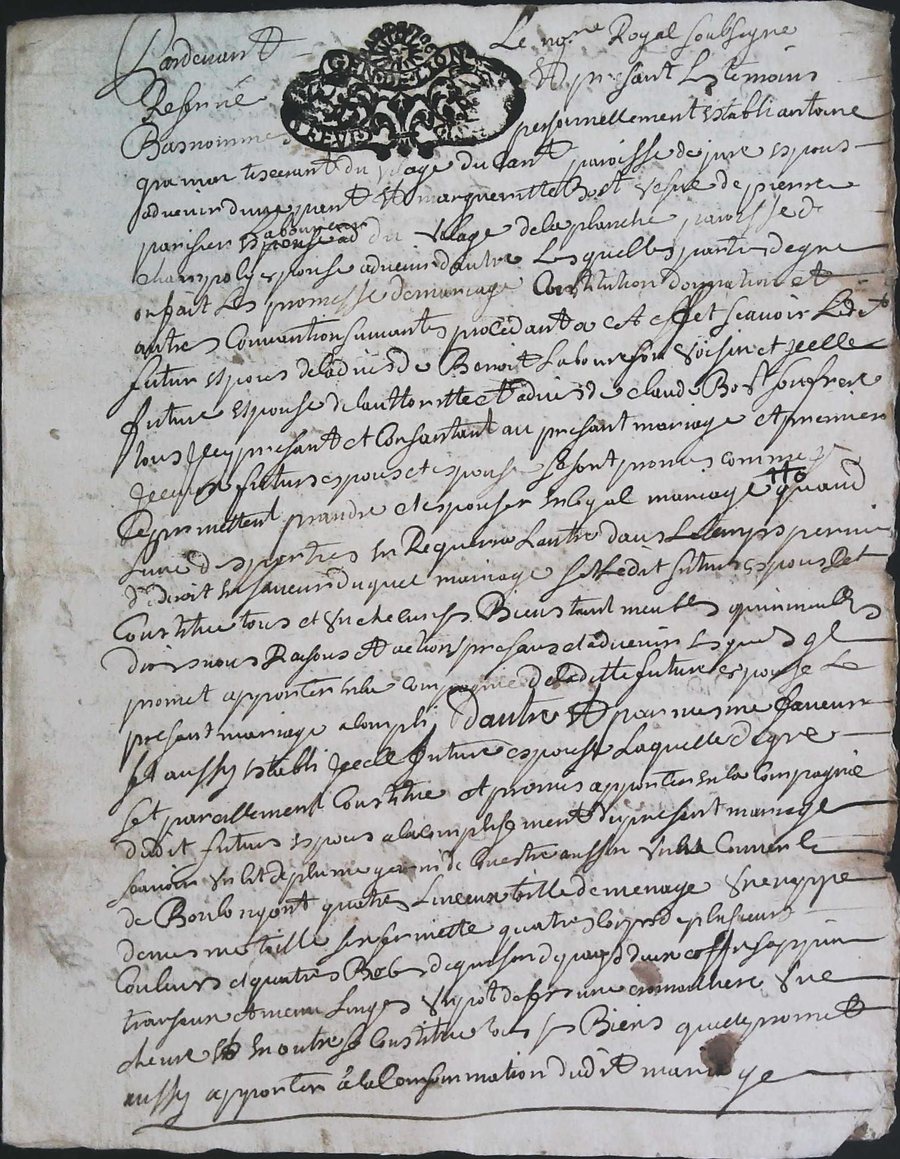 Pardevant Le no.re Royal soubsigné
Reservé Et presant Les temoins
GEN DE LYON
Basnommes personnellement Establi antoine
tisserant du vilage du paroisse de jure espous
advenir dune part Et margueritte Bost vefve de pierre
parisien espouse ad du vilage de la planche paroisse de
champoly espouse advenir dautre Lesquelles parties de gre
on fait Les promesse de mariage Constitution donnation et
autres Conventions suivantes procedant a Cet effet scavoir Ledit
futur espous de ladvis de Benoit Laboure son voisin et jcelle
future espouse de lauttoritte et advis de claude Bost son frere
tous jcy presant et Consantant au presant mariage et premierement
jceux futurs espous et espouse se sont promis comme
se promettent prandre et espouser en loyal mariage quand
Lune des parties en Requerra Lautre dans Le temps permis
de droit en faveur duquel mariage sest Ledit futur espous
Constitue tous et un chescun ses Biens tant meubles quimmeubles
drois nons Raisons et actions presans et advenir Lesquels jl
promet apporter en la compagnie de laditte future espouse Le
presant mariage acompli, dautre Et par mesme faveur
Est aussy establi jcelle future espouse Laquelle de gre
sest pareillement Constitue et promis apporter en la Compagnie
dudit futur espous a lacomplisement du presant mariage
scavoir un lit de plume garni de Cuestre aussin une Couverte
de quatre Linceux toille de menage une nappe
de mesme toille une serviette quatre de plusieurs
Couleurs et quatre Robes de du pays deux coffre sappin
et menu Linges un pot de fer une une
chevre Et en outre se Constitue tous ses Biens quelle promet
aussy apporter a la Consommation dudit mariage